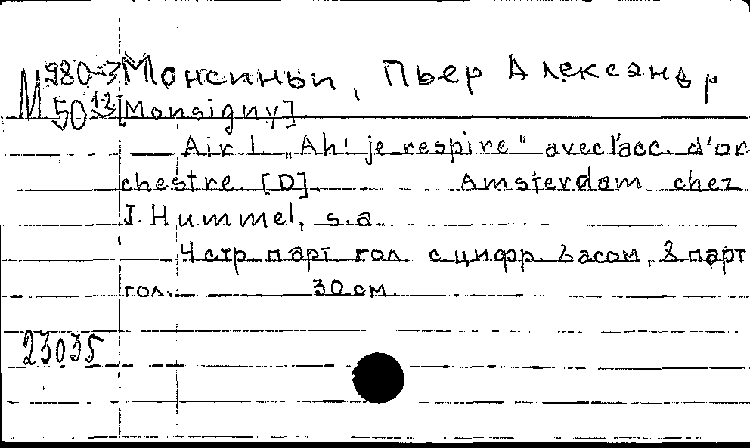 М 980-3 Монсиньи, Пьер Александр
50 12 [Monsigny]
Air 1. „Ah! je respire" avec l'acc. d'or
chestre. [D] Amsterdam chez
J. Hummel, s.a.
4 стр. парт. гол. с цифр. басом, 8 парт
гол. 30 см.
23035